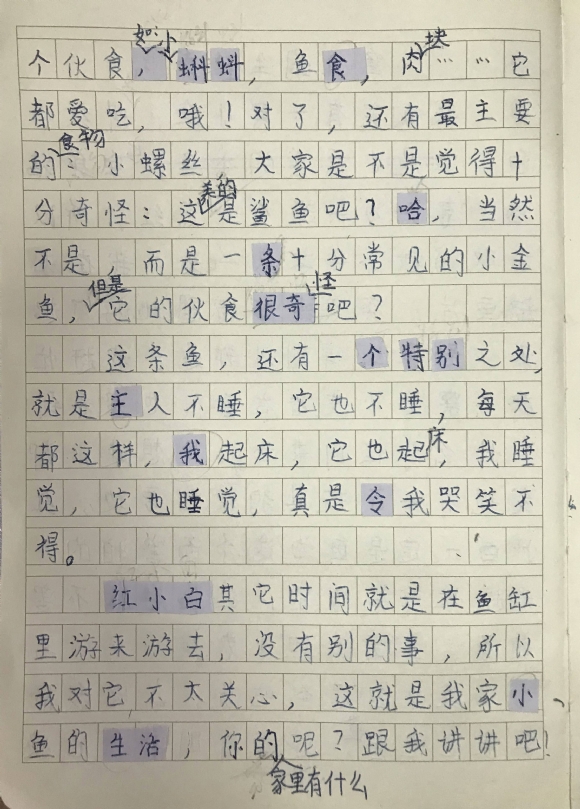 个伙食，如：小蝌蚪，鱼食，肉块……它
都爱吃，哦！对了，还有最主要
的食物：小螺丝 大家是不是觉得十
分奇怪：这养的是鲨鱼吧？哈，当然
不是，而是一条十分常见的小金
鱼，但是它的伙食很奇怪吧？
这条鱼，还有一个特别之处，
就是主人不睡，它也不睡，每天
都这样，我起床，它也起床，我睡
觉，它也睡觉，真是令我哭笑不
得。
红小白其它时间就是在鱼缸
里游来游去，没有别的事，所以
我对它不太关心，这就是我家小
鱼的生活，你的家里有什么呢？跟我讲讲吧！